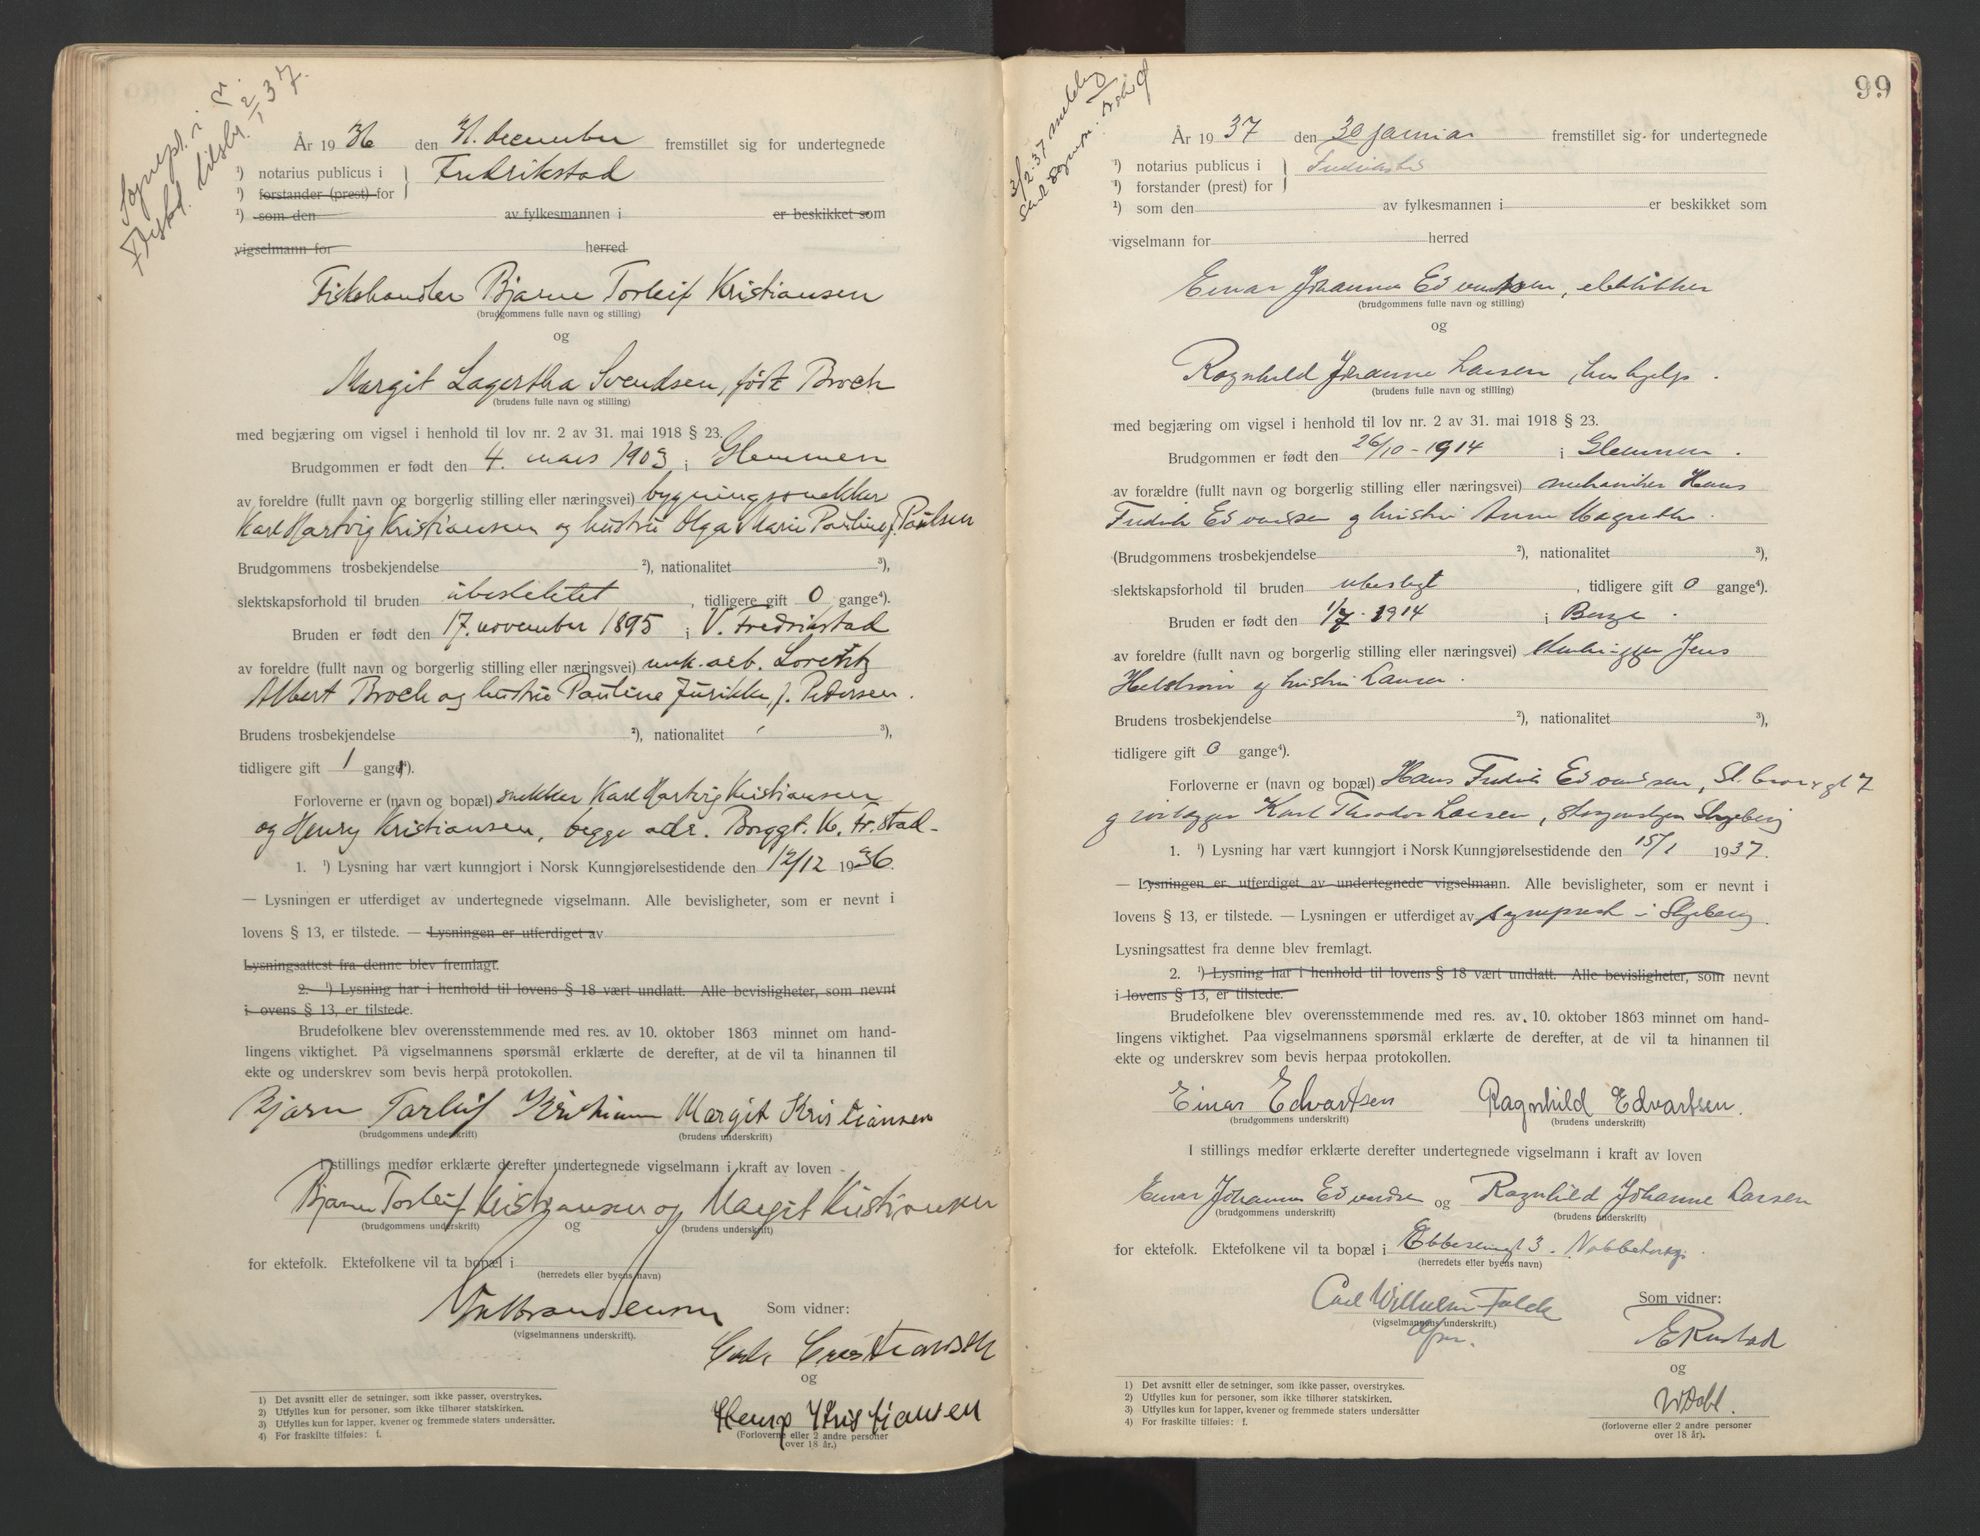 Sognepr. i
Fredrikst. tilskr. 2/1 37.
År 1936 den 31. december fremstillet sig for undertegnede
¹) notarius publicus i
¹) forstander (prest) for } Fredrikstad
¹) som den av fylkesmannen i er beskikket som
vigselmann for herred
Fiskehandler Bjarne Torleif Kristiansen
(brudgommens fulle navn og stilling)
og
Margit Lagertha Svendsen, født Broch
(brudens fulle navn og stilling)
med begjæring om vigsel i henhold til lov nr. 2 av 31. mai 1918 § 23.
Brudgommen er født den 4. mars 1903 i Glemmen
av foreldre (fullt navn og borgerlig stilling eller næringsvei) bygningssnekker
Karl Hartvig Kristiansen og hustru Olga Marie Pauline f. Paulsen
Brudgommens trosbekjendelse ²), nationalitet ³),
slektskapsforhold til bruden ubeslektet, tidligere gift 0 gange⁴).
Bruden er født den 17. november 1895 i V. Fredrikstad
av foreldre (fullt navn og borgerlig stilling eller nærjngsvei) mek. arb. Lorentz
Albert Broch og hustru Pauline Jurikke, f. Pedersen.
Brudens trosbekjendelse ²), nationalitet ³),
tidligere gift 1 gang⁴).
Forloverne er (navn og bopæl) snekker Karl Hartvig Kristiansen
og Henry Kristiansen, begge adr. Borggt. 16, Fr.stad.
1. ¹) Lysning har vært kunngjort i Norsk Kunngjørelsestidende den 12/12 1936.
— Lysningen er utferdiget av undertegnede vigselmann. Alle bevisligheter, som er nevnt i
lovens § 13, er tilstede. — Lysningen er utferdiget av
Lysningsattest fra denne blev fremlagt.
2. ¹) Lysning har i henhold til lovens § 18 vært undlatt. Alle bevisligheter, som nevnt
i ovens § 13, er tilstede.
Brudefolkene blev overensstemmende med res. av 10. oktober 1863 minnet om hand-
lingens viktighet. På vigselmannens spørsmål erklærte de derefter, at de vil ta hinannen til
ekte og underskrev som bevis herpå protokollen.
Bjarn Torleif Kristiansen Margit Kristiansen
(brudgommens underskrift) (brudens underskrift)
I stillings medfør erklærte derefter undertegnede vigselmann i kraft av loven
Bjarne Torleif Kristiansen og Margit Kristiansen
(brudgommens underskrift) og (brudens underskrift)
for ektefolk. Ektefolkene vil ta bopæl i
(herredets eller byens navn)
(vigselmannens underskrift).
Som vidner:
Cristiansen
og
Henry Kristiansen
(Forloverne eller 2 andre personer
over 18 år.)
1) Det avsnitt eller de setninger, som ikke passer, overstrykes.
2) Utfylles kun for personer, som ikke tilhører statskirken.
3) Utfylles kun for lapper, kvener og fremmede staters undersåtter.
4) For fraskilte tilføies: f.
99
3/2.37 melding
År 1937 den 30 januar fremstillet sig for undertegnede
¹) notarius publicus i
¹) forstander (prest) for } Fredrikstad
¹) som den av fylkesmannen i er beskikket som
vigselmann for herred
Einar Johannes Edvardsen, elektriker
(brudgommens fulle navn og stilling)
og
Ragnhild Johanne Larsen, hushjelp.
(brudens fulle navn og stilling)
med begjæring om vigsel i henhold til lov nr. 2 av 31. mai 1918 § 23.
Brudgommen er født den 26/10-1914 i Glemmen.
av forældre (fullt navn og borgerlig stilling eller næringsvei) mekaniker Hans
Fredrik Edvardsen og hustru Anna Magrethe.
(Brudgommens trosbekjendelse ²), nationalitet ³),
slektskapsforhold til bruden ubeslegt, tidligere gift 0 gange⁴).
Bruden er født den 1/7-1914 i Borge.
av foreldre (fullt navn og borgerlig stilling eller næringsvei) stenhugger Jens
Helstrøm og hustru Laura.
Brudens trosbekjendelse ²), nationalitet ³),
tidligere gift 0 gange⁴).
Forloverne er (navn og bopæl) Hans Fredrik Edvardsen, St. Croixgt 7
og Karl Theodor Larsen, Skjeberg
1. ¹) Lysning har vært kunngjort i Norsk Kunngjørelsestidende den 15/1 1937.
— Lysningen er utferdiget av undertegnede vigselmann. Alle bevisligheter, som er nevnt i
lovens § 13, er tilstede. — Lysningen er utferdiget av sogneprest i Skjeberg.
Lysningsattest fra denne blev fremlagt.
2. ¹) Lysning har i henhold til lovens § 18 vært undlatt. Alle bevisligheter, som nevnt
i lovens § 13, er tilstede.
Brudefolkene blev overensstemmende med res. av. 10. oktober 1863 minnet om hand-
lingens viktighet. Paa vigselmannens spørsmål erklærte de derefter, at de vil ta hinannen til
ekte og underskrev som bevis herpaa protokollen.
Einar Edvartsen Ragnhild Edvartsen.
(brudgommens underskrift) (brudens underskrift)
I stillings medfør erklærte derefter undertegnede vigselmann i kraft av loven
Einar Johannes Edvardsen og Ragnhild Johanne Larsen
(brudgommens underskrift) (brudens underskrift)
for ektefolk. Ektefolkene vil ta bopæl i 3.
(herredets eller byens navn)
Carl Wilhelm Falck
(vigselmannens underskrift.)
Som vidner:
E Rustad
og
W Dahl.
(forloverne eller 2 andre personer
over 18 år).
1) Det avsnitt eller de setninger, som ikke passer, overstrykes.
2) Utfylles kun for personer, som ikke tilhører statskirken.
3) Utfylles kun for lapper, kvener og fremmede staters undersåtter
4) For fraskilte tilføies: f.